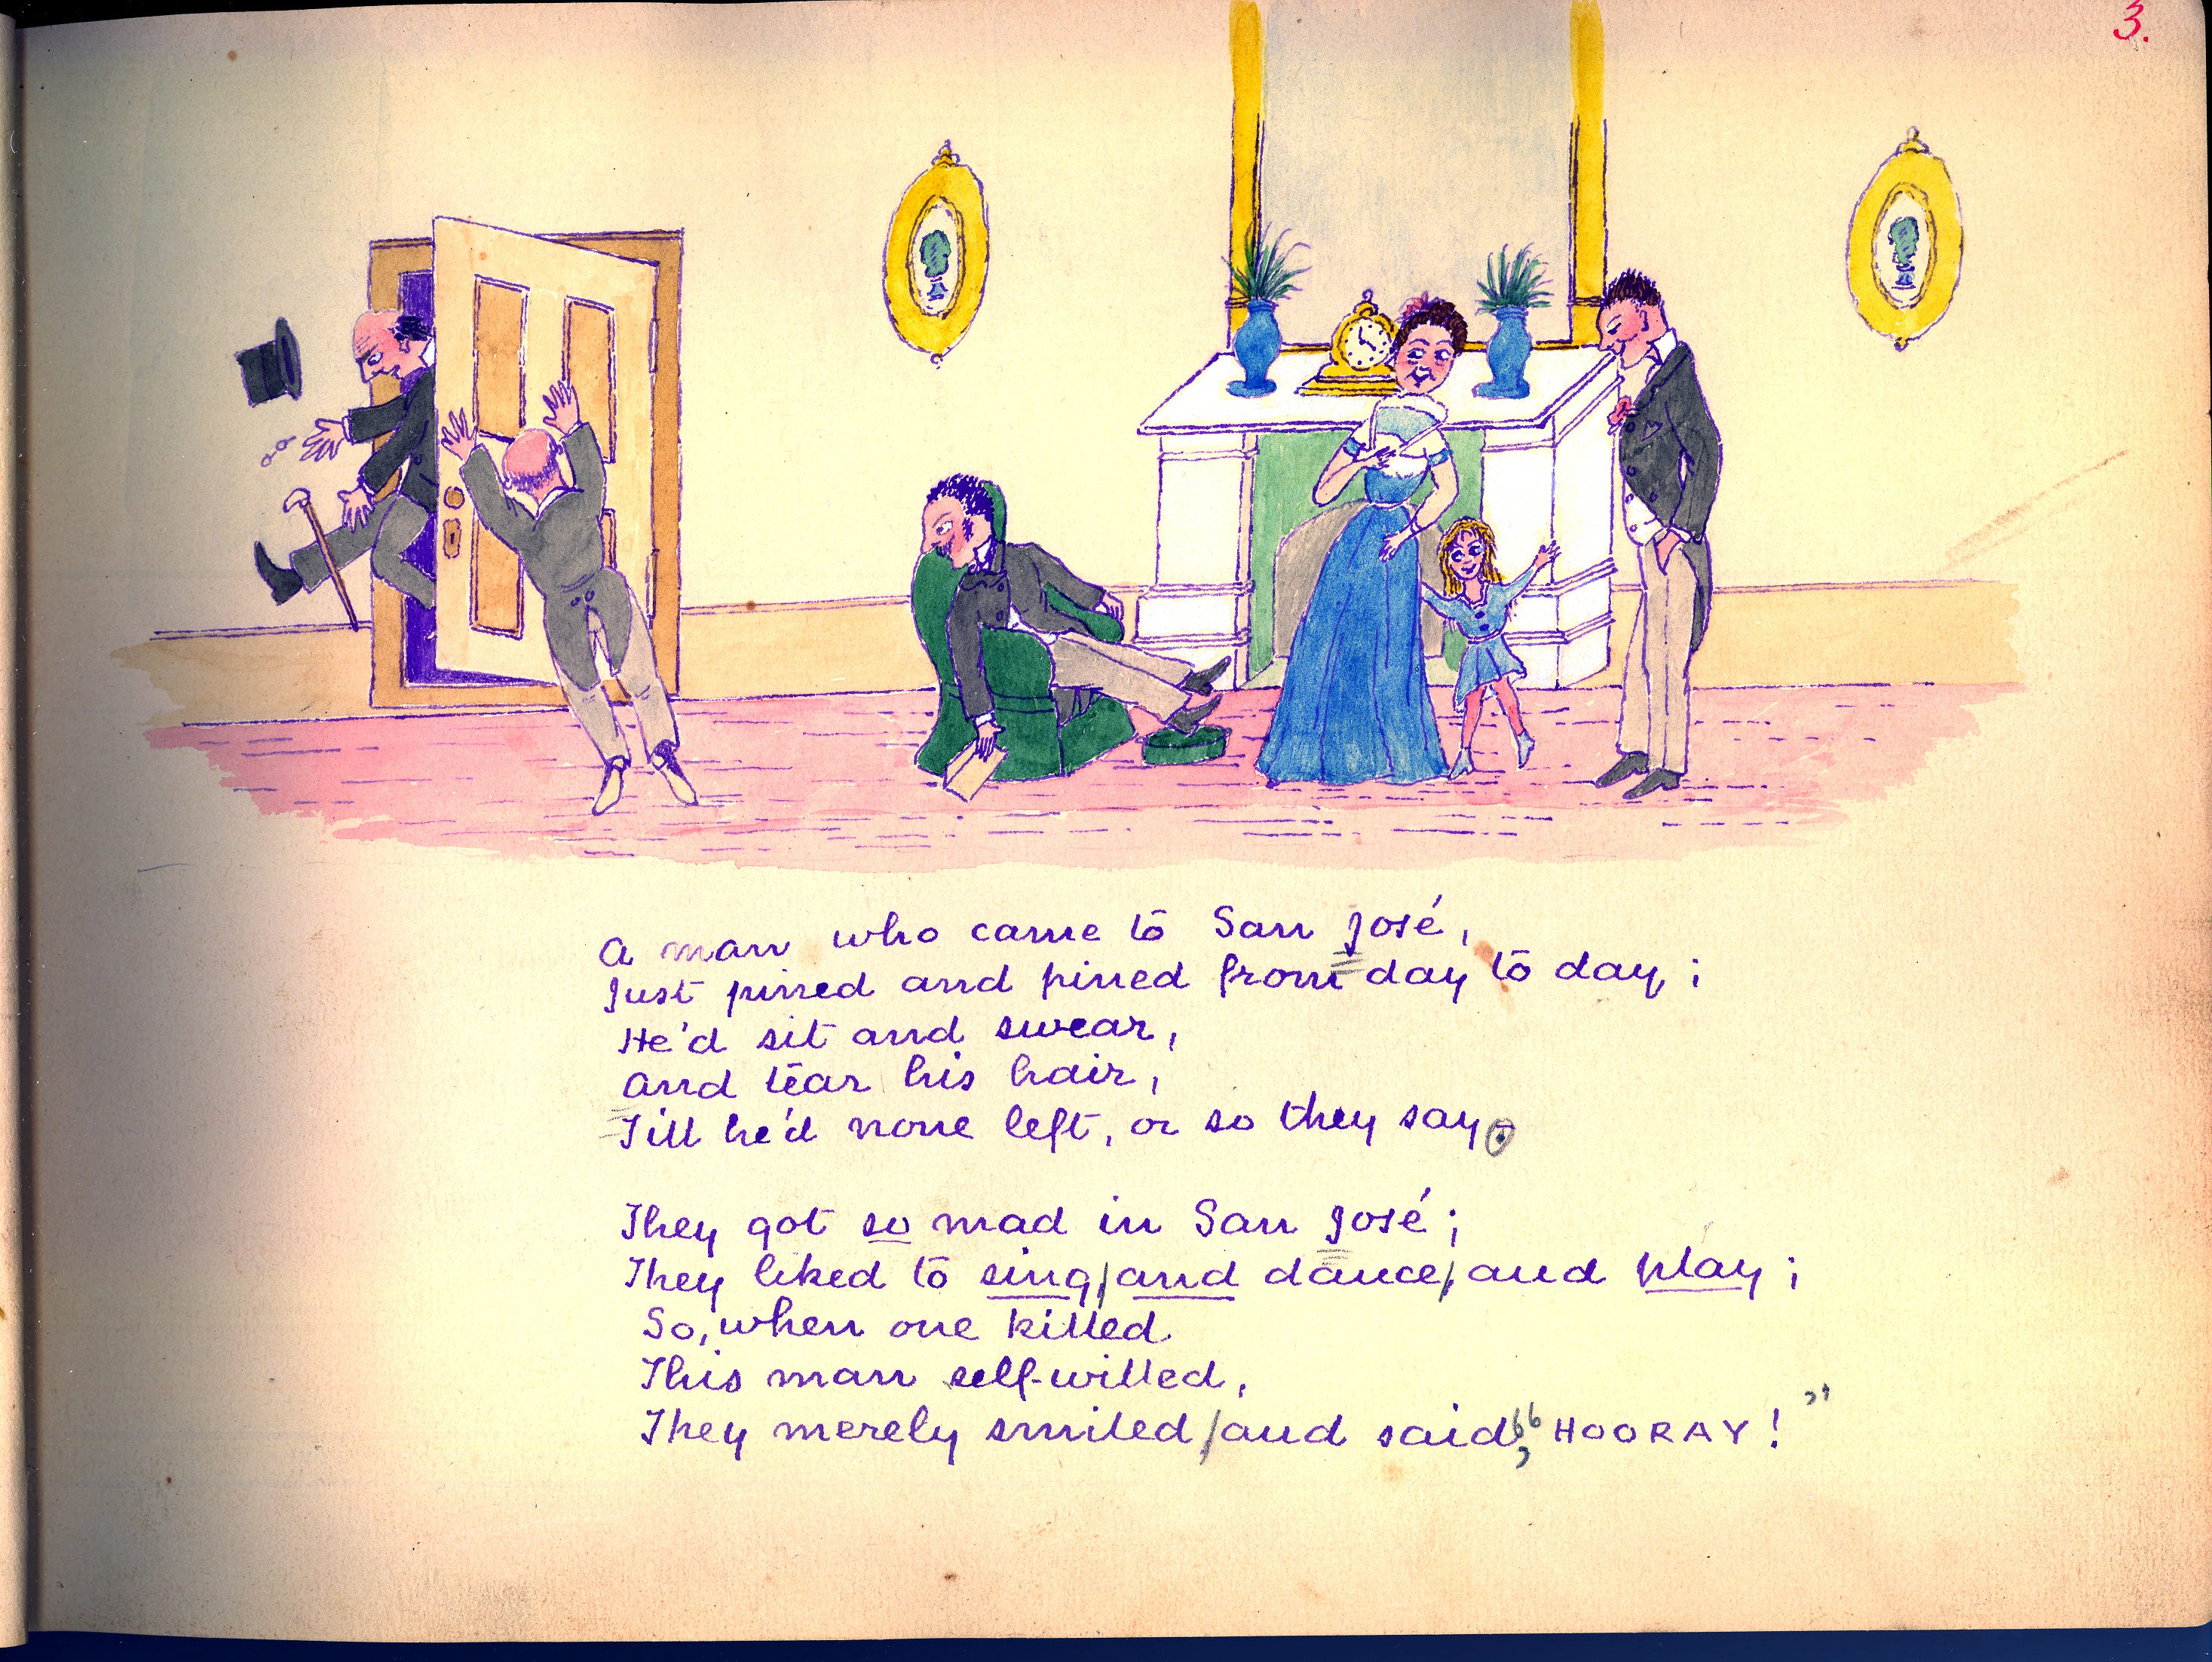 3.
A man who came to San José,
Just pined and pined from day to day;
He'd sit and swear,
And tear his hair,
Till he'd none left, or so they say.
They got so mad in San José;
They liked to sing, and dance, and play;
So, when one killed
This man self-willed,
They merely smiled, and said, "HOORAY!"